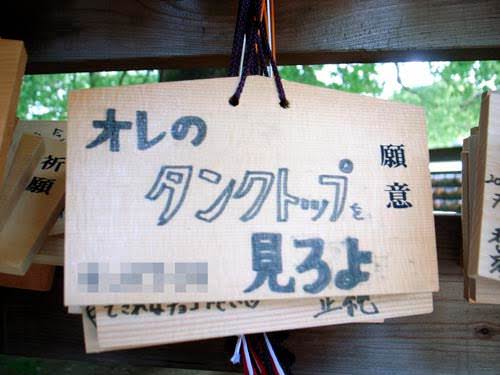 オレの
タンクトップを
見ろよ
願意
祈願